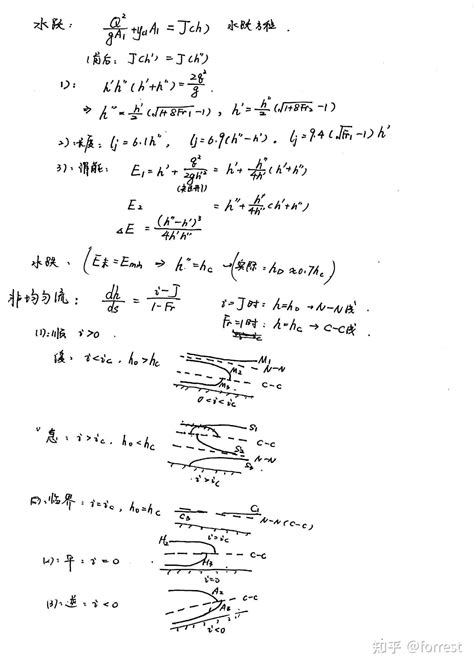 水跃: Q²/gA₁ + y_{d}A₁ = J(h) 水跃方程.
(前后: J(h') = J(h")
1): h'h"(h'+h") = 2q²/g.
⇒ h" = h'/2 (√1+8Fr₁ -1), h' = h"/2 (√1+8Fr₂ -1)
2) 长度: lj = 6.1h", lj = 6.9(h"-h'), lj = 9.4(√Fr₁ -1)h'
3): 消能: E₁ = h' + q²/2gh'² = h' + h"/4h' (h'+h")
E₂ = h" + h'/4h" (h'+h")
△E = (h"-h')³/4h'h"
水跌: (E末=Emin ⇒ h"=hc → (实际: hD≈0.7hc)
非均匀流: dh/ds = i-J/1-Fr i=J时: h=h₀ → N-N线
Fr=1时: h=hc → C-C线.
(1): i>0.
缓: i<ic, h₀>hc M₁ N-N M₂ C-C M₃
0<i<ic
急: i>ic, h₀<hc S₁ C-C S₂ N-N S₃
i>ic
临界: i=ic, h₀=hc C₃ C₁ N-N(C-C)
i=ic
(2): 平: i=0 H₂ C-C H₃
i=0
(3): 逆: i<0 A₂ C-C A₃
i<0
知乎 @forrest